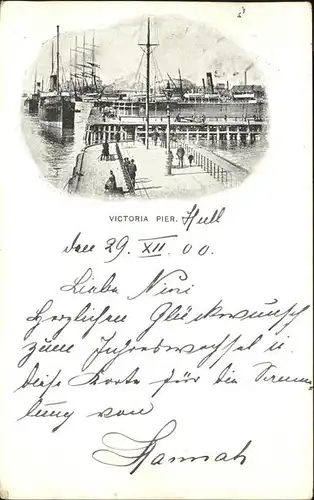 VICTORIA PIER. Hull
den 29. XII. 00.
Liebe Nini
Herzlichen Glückwunsch
zum Jahreswechsel u.
diese Karte für die Samm-
lung von
Hannah